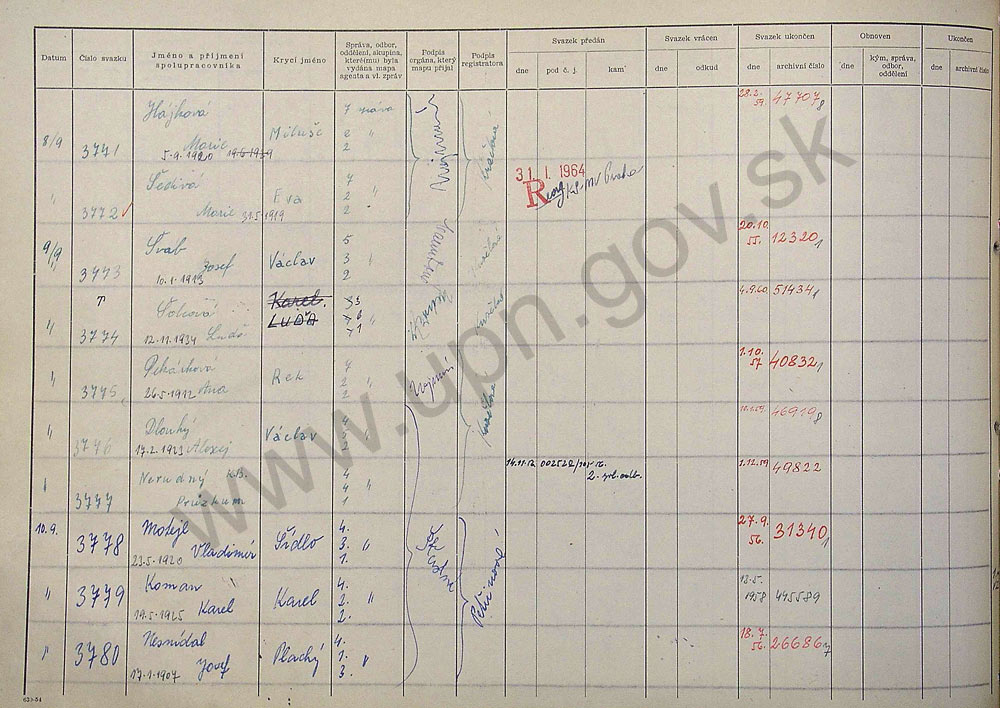 Datum
Číslo svazku
Jméno a příjmení
spolupracovníka
Krycí jméno
Správa, odbor,
oddělení, skupina,
které(mu) byla
vydána mapa
agenta a vl. zpráv
Podpis
orgána, který
mapu přijal
Podpis
registratora
Svazek předán
dne
pod č. j.
kam
Svazek vrácen
dne
odkud
Svazek ukončen
dne
archivní číslo
Obnoven
dne
kým, správa,
odbor,
oddělení
Ukončen
dne
archivní číslo
8/9 3771 Hájková
Marie
5-9-1920 19.6.1919
Miluše
7 správa
2 "
2
28.2.
59. 47707 8
" 3772 Šedivá
Marie 31.5-1919
Eva
7
2 "
2
31. I. 1964
R
9/9 3773 Šváb
Josef
10.1.1913
Václav
5
3 "
2
20.10.
55. 12320 1
" 3774
12-11-1934
Karel.
LUĎA
4.9.60. 51434 1
" 3775 Pekárková
26-5-1912 Ana
Rek
7
2 "
2
1.10.
57 40832 1
" 3776 Dlouhý
17.2.1923 Alexej
Václav
46919 8
3777 Nerudný KB.
Průzkum
4
4 "
1
1.12.59 49822
10.9. 3778 Motejl
Vladimír
23.5-1920
Šídlo
4.
3. "
1.
27.9.
56. 31340 1
" 3779 Koman
Karel
19.5-1925
Karel
4.
2. "
2.
13.5.
1958 445589
" 3780 Nesnídal
Josef
17.1-1907
Plachý
4.
1. "
3.
18.7.
56. 26686 7
639-54
www.upn.gov.sk